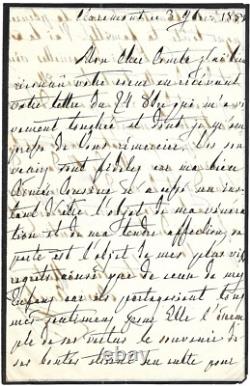 Claremont 3 9bre 18
Mon cher Comte j'ai bien
reconnu votre cœur en recevant
votre lettre du 24 8bre qui m'a
vivement touchée et dont je m'em
presse de vous remercier. Les sou
venirs sont fidèles par ma bien
Aimée Cousine n'a cessé un ins
tant d'être l'objet de ma vénération
et de ma tendre affection, sa
perte est l'objet de mes plus vifs
regrets ainsi que de ceux de mes
Enfans car ils partageaient tous
mes sentimens pour Elle l'exem
ple de ses vertus le souvenir de
ses bontés seront un culte pour
© eBay